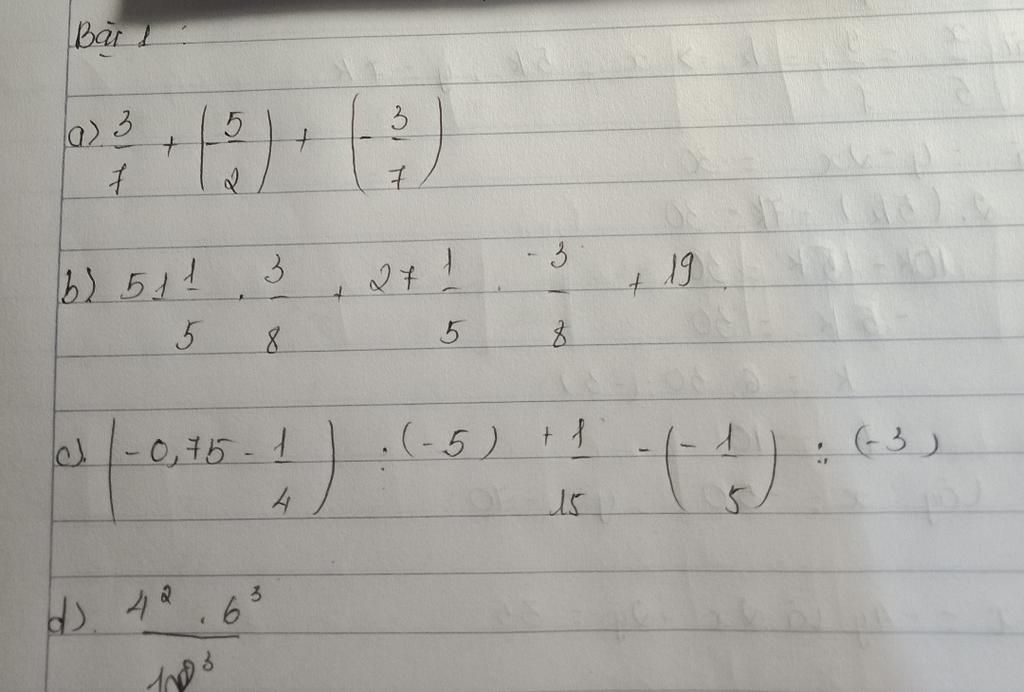 Bài 1 :
a) 3/7 + (-5/2) + (-3/7)
b) 51 1/5 . 3/8 + 27 1/5 . -3/8 + 19
c). (-0,75 - 1/4) : (-5) + 1/15 - (-1/5) : (-3)
d). 4² . 6³